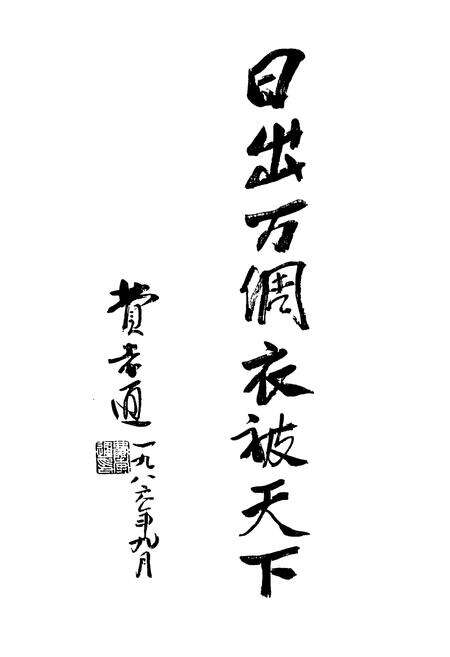 日出万绸衣被天下
費孝通
一九八六年九月